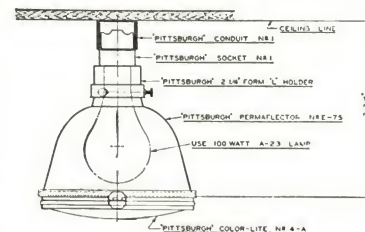 CEILING LINE
"PITTSBURGH" CONDUIT Nº 1
"PITTSBURGH" SOCKET Nº 1
"PITTSBURGH" 2 1/4" FORM "L" HOLDER
"PITTSBURGH" PERMAFLECTOR Nº E-75
USE 100 WATT A-23 LAMP
"PITTSBURGH" COLOR-LITE Nº 4-A